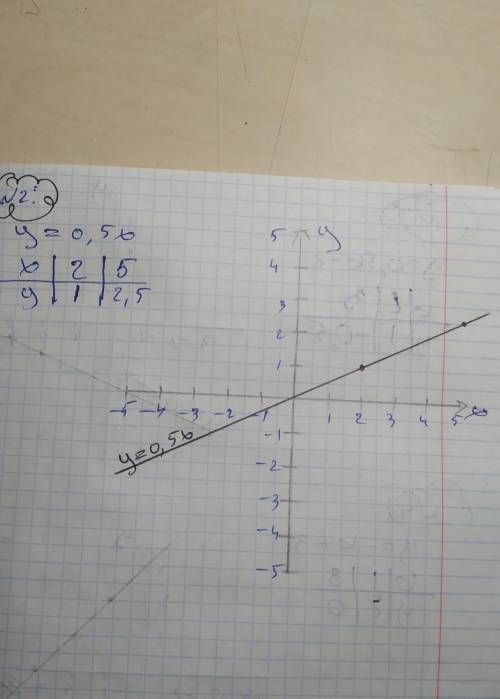 №2:
y = 0,5x
x | 2 | 5
y | 1 | 2,5
y
5
4
3
2
1
-5 -4 -3 -2 -1 1 2 3 4 5 x
-1
-2
-3
-4
-5
y=0,5x